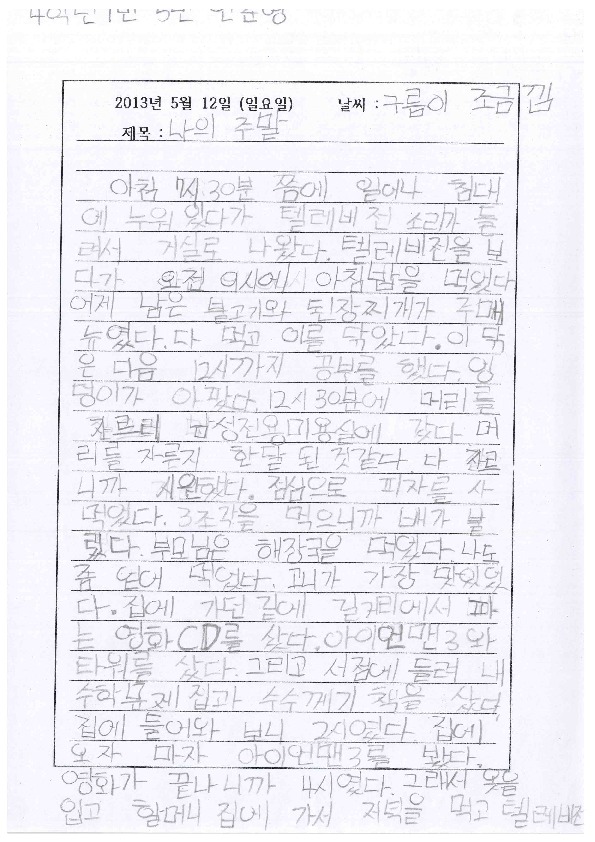 4학년 1반 5번
2013년 5월 12일 (일요일) 날씨 : 구름이 조금 낌
제목 : 나의 주말
아침 7시 30분 쯤에 일어나 침대
에 누워 있다가 텔레비전 소리가 들
려서 거실로 나왔다. 텔레비전을 보
다가 오전 9시에 아침밥을 먹었다
어제 남은 불고기와 된장찌개가 주메
뉴였다. 다 먹고 이를 닦았다. 이 닦
은 다음 12시까지 공부를 했다. 엉
덩이가 아팠다. 12시 30분에 머리를
자르러 남성전용미용실에 갔다 머
리를 자른지 한달 된 것같다. 다 자르
니까 시원했다. 점심으로 피자를 사
먹었다. 3조각을 먹으니까 배가 불
렀다. 부모님은 해장국을 먹었다. 나도
좀 얻어 먹었다. 고기가 가장 맛있었
다. 집에 가던 길에 길거리에서 파
는 영화 CD를 샀다. 아이언맨3와
타워를 샀다. 그리고 서점에 들러 내
수학문제집과 수수께기 책을 샀다
집에 들어와 보니 2시였다. 집에
오자 마자 아이언맨3를 봤다.
영화가 끝나니까 4시였다. 그래서 옷을
입고 할머니 집에 가서 저녁을 먹고 텔레비전